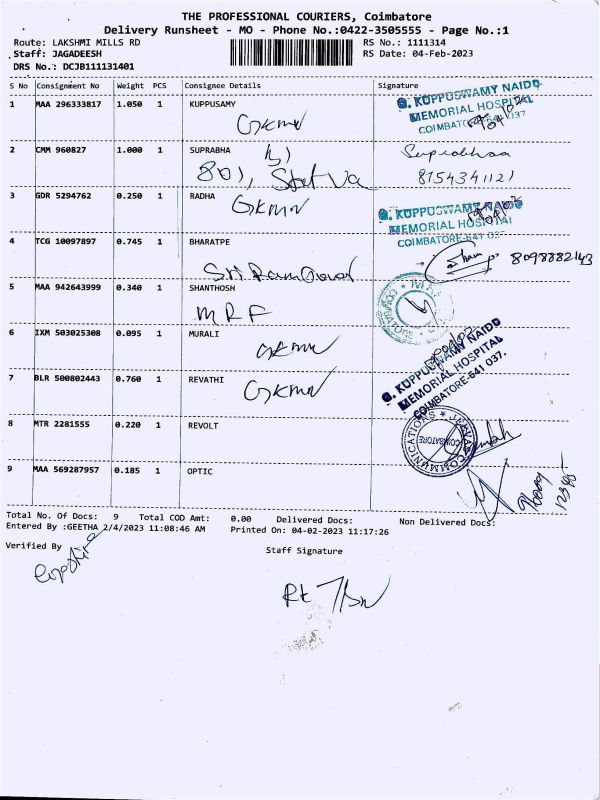 THE PROFESSIONAL COURIERS, Coimbatore
Delivery Runsheet - MO - Phone No.:0422-3505555 - Page No.:1
Route: LAKSHMI MILLS RD
RS No.: 1111314
Staff: JAGADEESH
RS Date: 04-Feb-2023
DRS No.: DCJB111131401
S No Consignment No Weight PCS Consignee Details Signature
1 MAA 296333817 1.050 1 KUPPUSAMY
GKMN
G. KUPPUSWAMY NAIDU
MEMORIAL HOSPITAL
COIMBATORE-641 037
2 CMM 960827 1.000 1 SUPRABHA
801,
Suprabhaa
8754341121
3 GDR 5294762 0.250 1 RADHA
GKMN
G. KUPPUSWAMY NAIDU
MEMORIAL HOSPITAL
COIMBATORE-641 037
4 TCG 10097897 0.745 1 BHARATPE
8098882143
5 MAA 942643999 0.340 1 SHANTHOSH
MRF
6 IXM 503025308 0.095 1 MURALI
GKMN
G. KUPPUSWAMY NAIDU
MEMORIAL HOSPITAL
COIMBATORE-641 037.
7 BLR 500802443 0.760 1 REVATHI
GKMN
8 MTR 2281555 0.220 1 REVOLT
COMMUNICATIONS
COIMBATORE
9 MAA 569287957 0.185 1 OPTIC
Total No. Of Docs: 9 Total COD Amt: 0.00 Delivered Docs: Non Delivered Docs:
Entered By :GEETHA 2/4/2023 11:08:46 AM Printed On: 04-02-2023 11:17:26
Verified By
Staff Signature